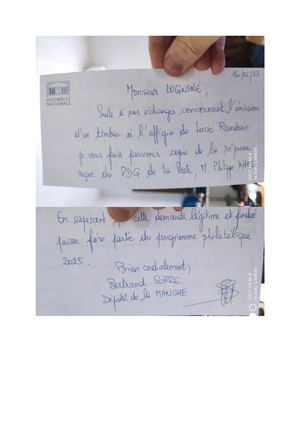 ASSEMBLÉE
NATIONALE
14/02/23
Monsieur LOGNONÉ,
Suite à nos échanges concernant l'émission
d'un timbre à l'effigie de Lucie Randoin
je vous fais parvenir copie de la réponse
reçue du PDG de la Poste, M. Philippe WAHL
En espérant que cette demande légitime et fondée
puisse faire partie du programme philatélique
2025.
Bien cordialement,
Bertrand SORRE
Député de la MANCHE